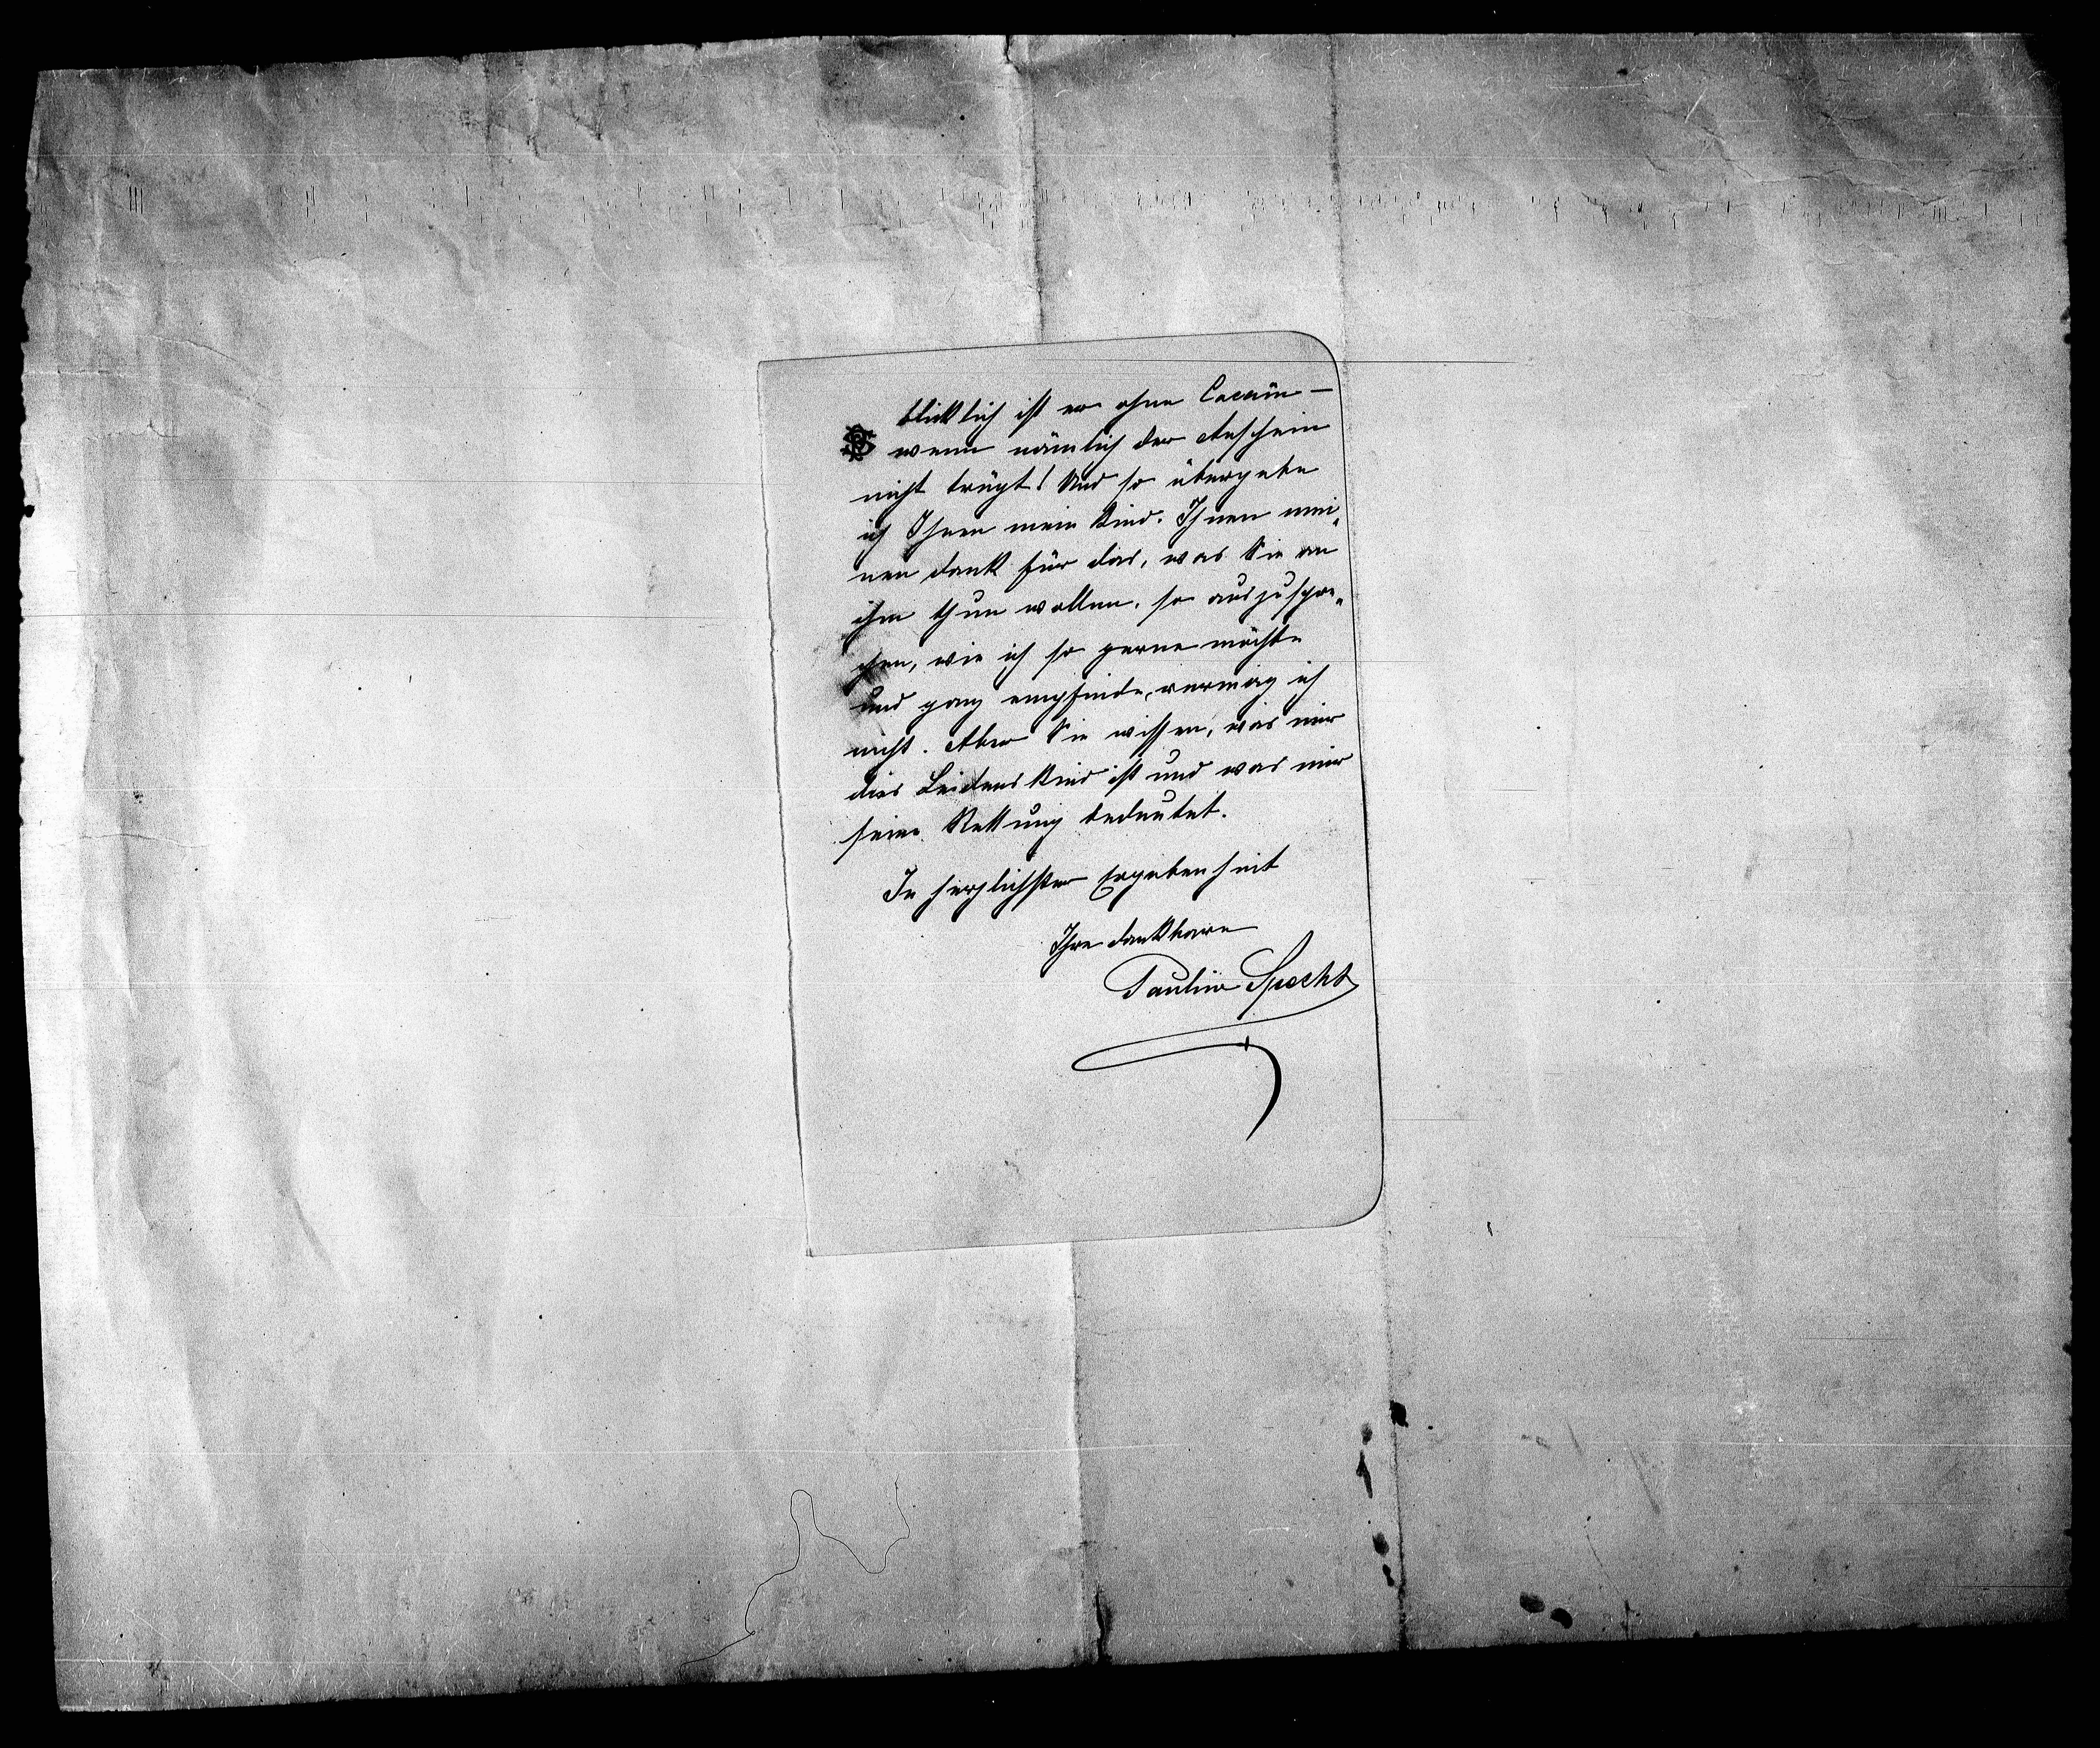 blicklich ist er ohne Cocain –
wenn nämlich der Anschein
nicht trügt! Und so übergebe
ich Ihnen mein Kind. Ihnen mei„
nen Dank für das, was Sie an
ihm thun wollen, so auszuspre„
chen, wie ich so gerne möchte
und ganz empfinde, vermag ich
nicht. Aber Sie wissen, was mir
dies Leidenskind ist und was mir
seine Rettung bedeutet.
In herzlichster Ergebenheit
Ihre dankbare
Pauline Specht